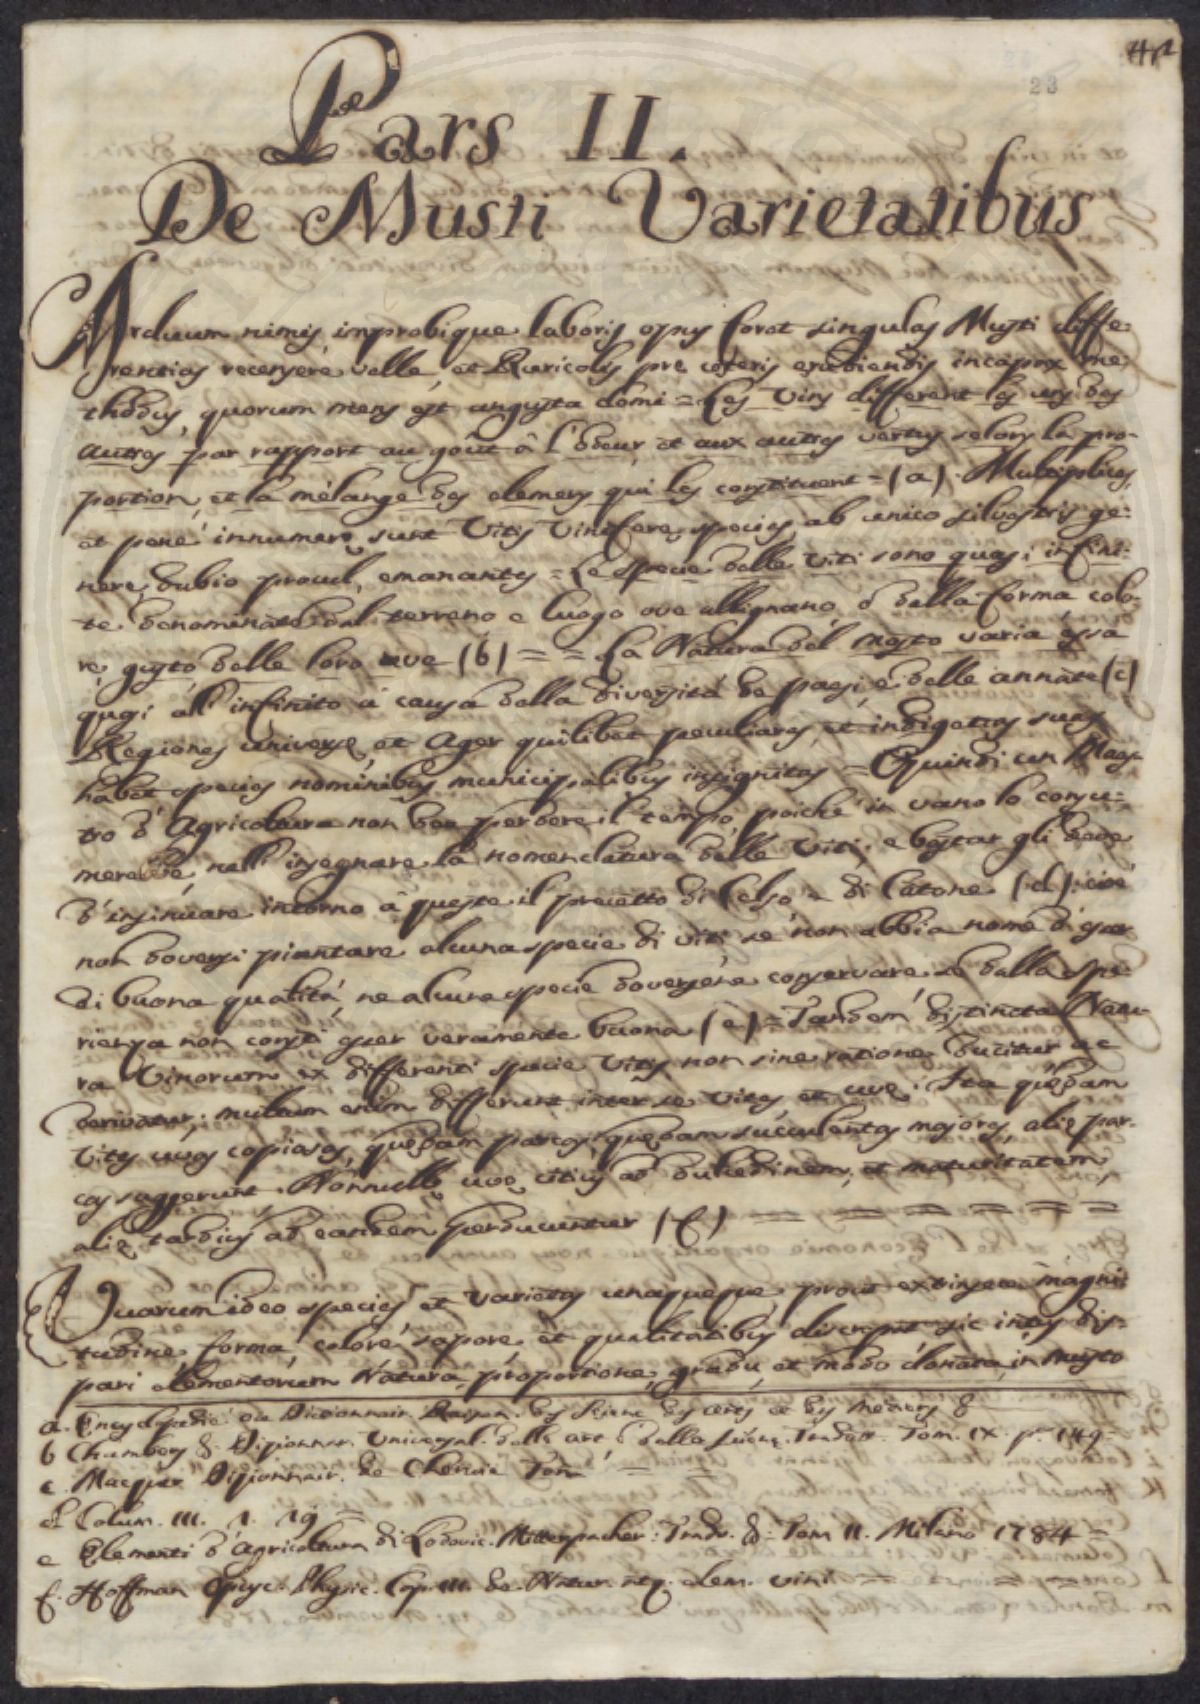 23
Pars II.
De Musti Varietatibus
Arduum nimis improbique laboris opus foret singulas Musti diffe
rentias recensere velle, et Ruricolis pre ceteris erudiendis incapax me
thodus, quorum mens est angusta domi = Les Vins different les uns des
autres par rapport au goût à l'odeur et aux autres vertus selon la pro-
portion, et la mélange des elemens qui les constituent = (a). Multiplices,
et penè innumerę sunt Vitis Viniferę species, ab unico silvestris ge-
nere, dubio procul, emanantes = Le specie delle Viti sono quasi infini-
te denominate dal terreno e luogo ove allignano, ò della forma colo-
re, gusto delle loro uve (b) = = La Natura del mosto varia essa
quasi all'infinito à causa della diversità de paesi, e delle annate (c)
Regiones universę, et Ager quilibet peculiares, et indigetas suas
habet species nominibus municipalibus insignitas = Quindi un Maes-
tro d'Agricoltura non dee perdere il tempo, poichè in vano lo consu-
merebbe, nell'insegnare la nomenclatura delle Viti, e bastar gli deve
d'insinuare intorno à queste il precetto di Celso e di Catone (d): cioè
non doversi piantare alcuna specie di viti se non abbia nome d'esser
di buona qualità, ne alcuna specie doversene conservare, se dalla spe-
rienza non consti esser veramente buona (e) = Tandem distincta Natu-
ra Vinorum ex differenti specie Vitis non sine ratione ducitur ac
derivatur; multum enim differunt inter se Vites et uvę. Ita quędam
Vites uvas copiosas, quędam parcas, quędam succulentas majores, alię par-
cas suggerunt. Nonnullę uvę citius ad dulcedinem, et maturitatem
alię tardius ad eandem perducuntur (f) = = = = = = =
Quarum ideo species, et varietas unaquęque, prout extrinseca magni
tudine, forma, colore, sapore, et qualitatibus discrepat sic intus dis-
pari elementorum Natura, proportione, gradu, et modo donata, in musto
a. Encyclopedie ou Dictionnair. Raison. des Scienc des Arts et des Metiers &
b Chambers &. Dizionar. Universal. delle arti è delle Scienz. Tradotto. Tom. IX. p. 149.
c. Macquer Dizionnair. de Chemie Tom. =
d Colum. III. 1. 19 =
e Elementi d'Agricoltura di Lodovic. Mitterpacher: Trad. &: Tom II. Milano 1784 =
f. Hoffman Physic. Cap. III. de Natur. elem. vini = = = =